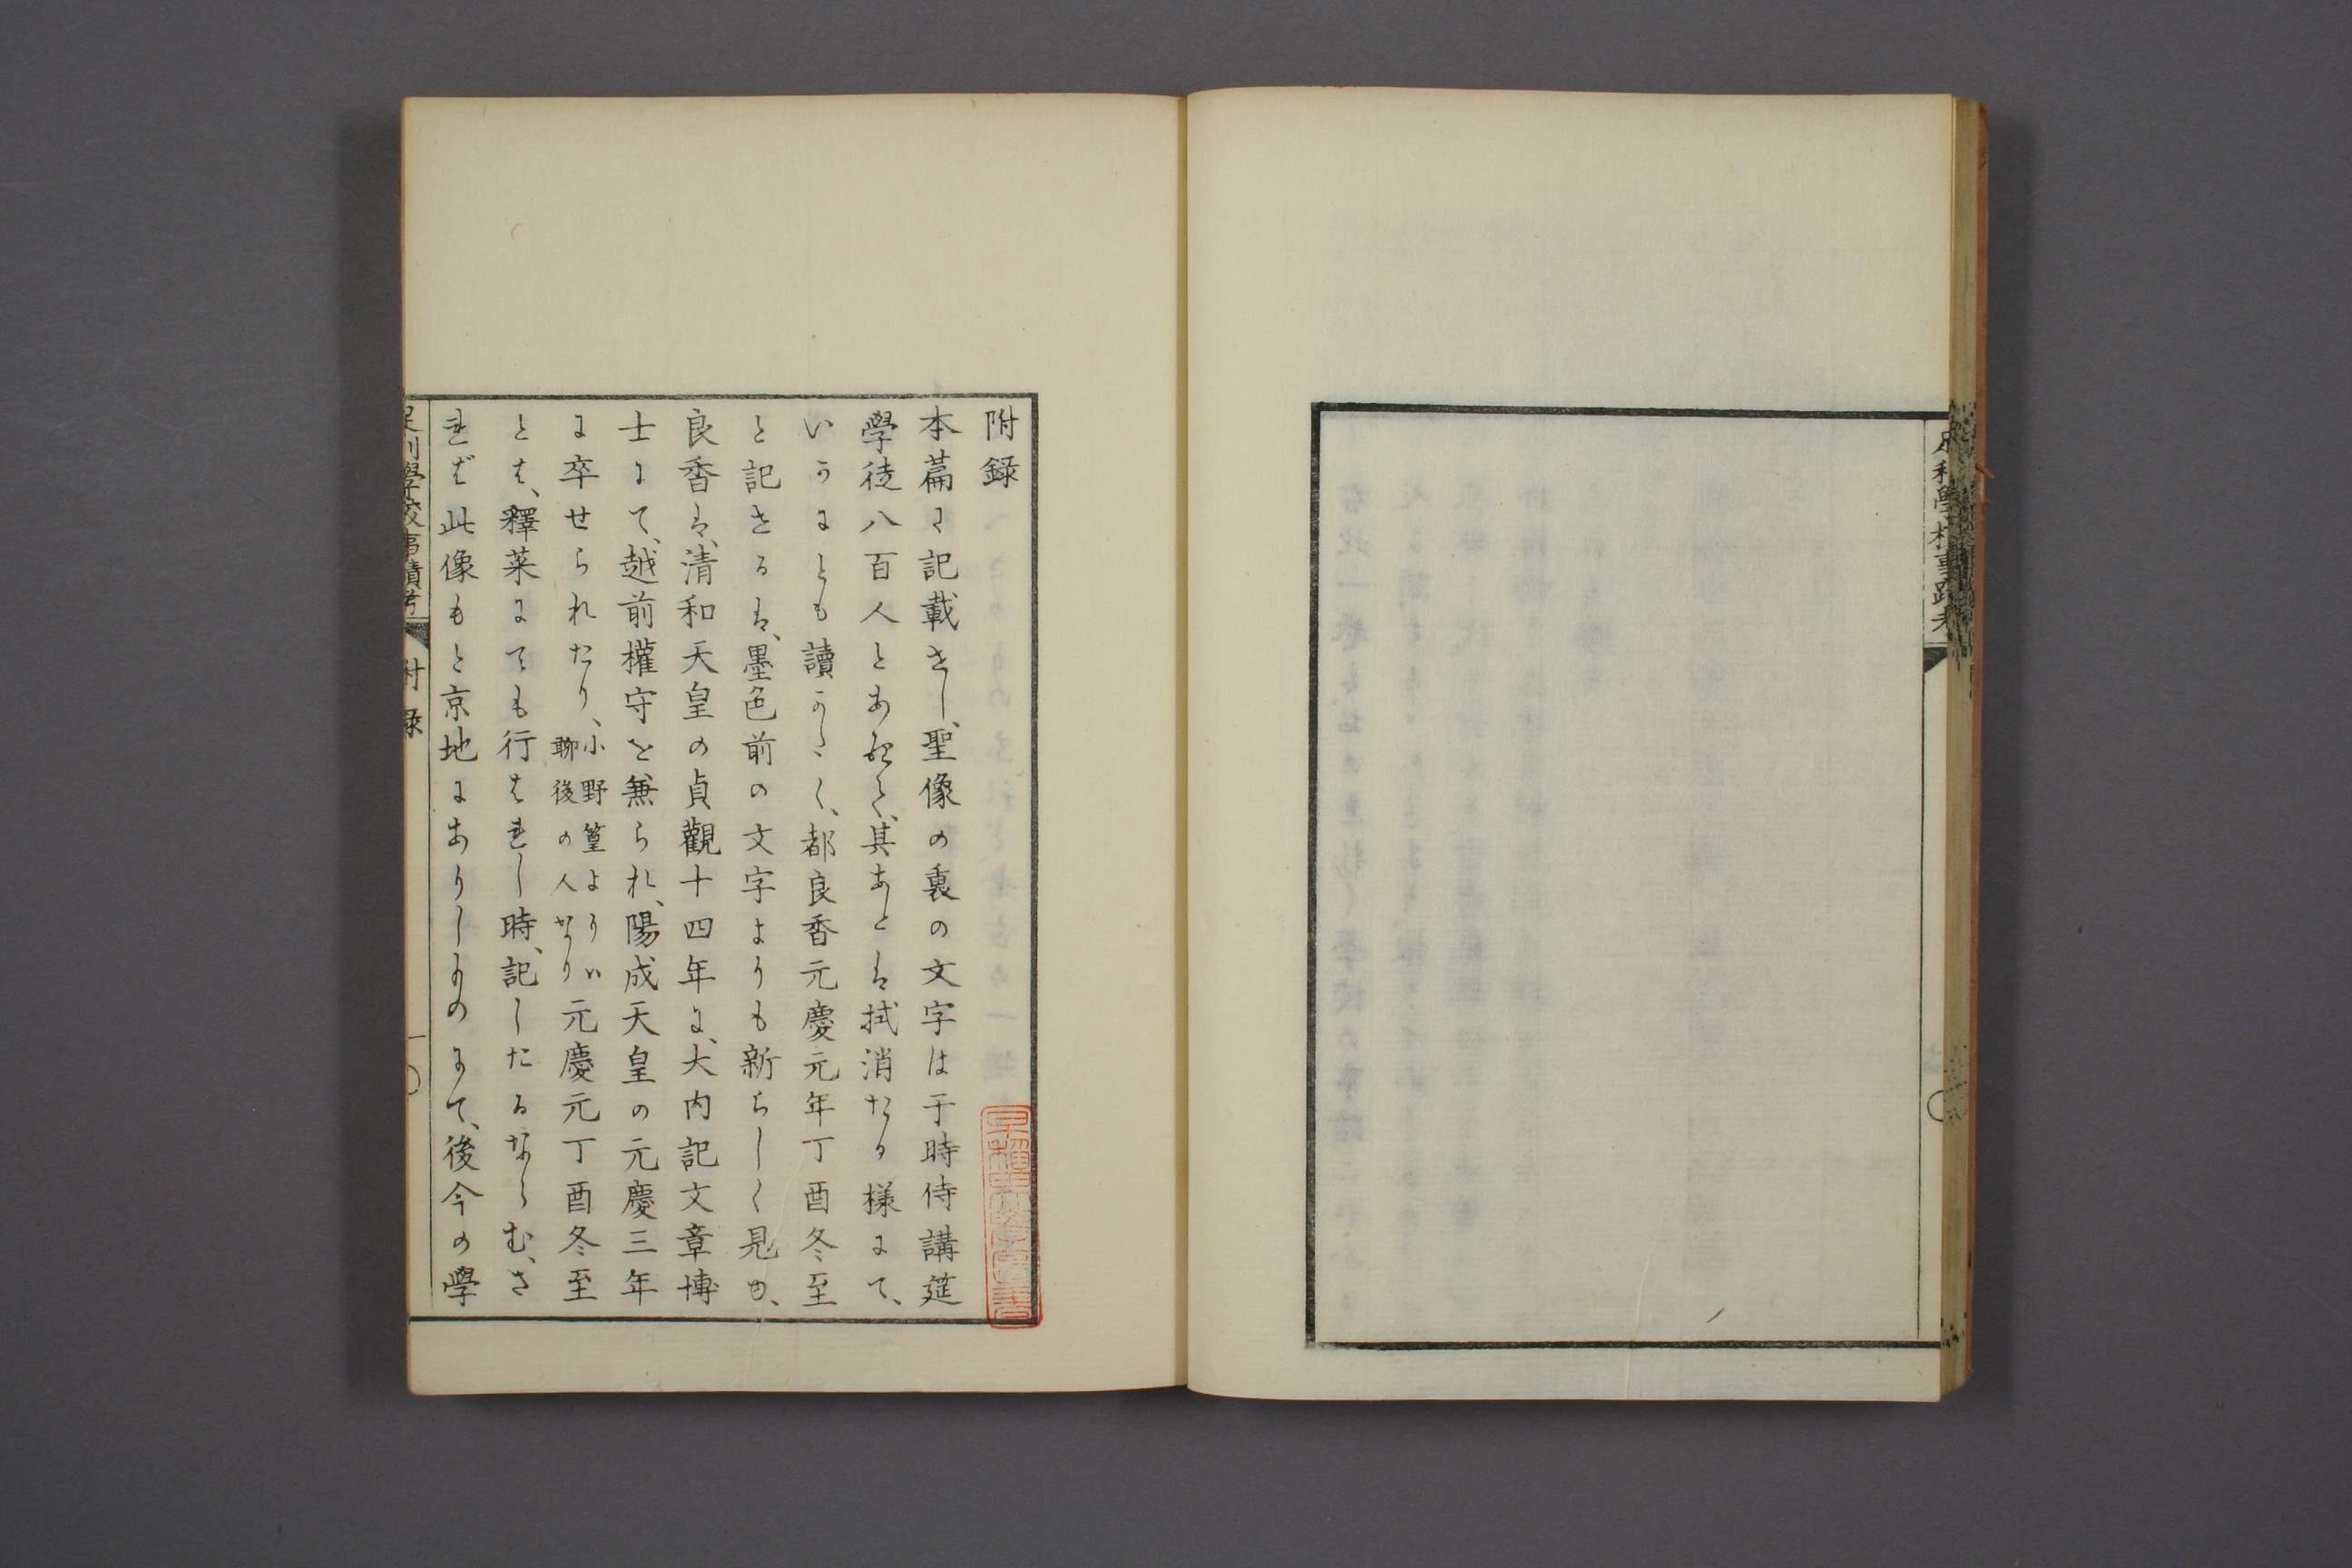 足利學校事蹟考
附錄
本篇に記載せし、聖像の裏の文字は于時侍講筵
學徒八百人とありて、其あとは拭消たる樣にて、
いかにとも讀かたく、都良香元慶元年丁酉冬至
と記せるは、墨色前の文字よりも新らしく見ゆ、
良香は、淸和天皇の貞觀十四年に、大內記文章博
士にて、越前權守を兼られ、陽成天皇の元慶三年
に卒せられたり、小野篁よりハ
聊後の人なり元慶元丁酉冬至
とは、釋菜にても行はれし時、記したるならむ、さ
れば此像もと京地にありしものにて、後今の學
足利學校事蹟考 附錄 一